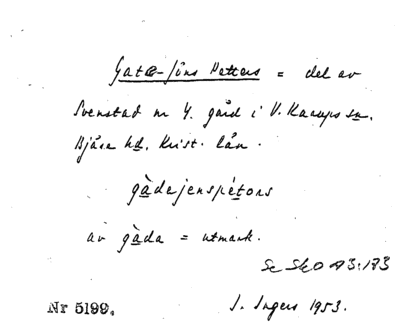 Gate-Jöns Petters = del av
Svenstad nr 4. gård i V. Karups sn.
Bjäre hd. Krist. län.
gàdajenspétors
av gàda = utmark.
Se SkO A3:173
I. Ingers 1953.
Nr 5199.